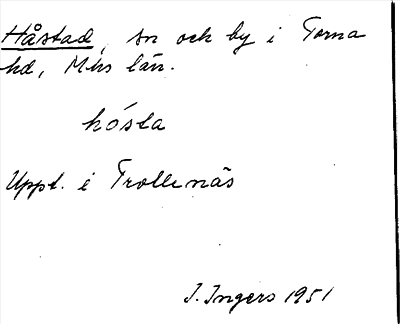 Håstad, sn och by i Torna
hd, Mhs län.
hósta
Uppt. i Trollenäs
I. Ingers 1951